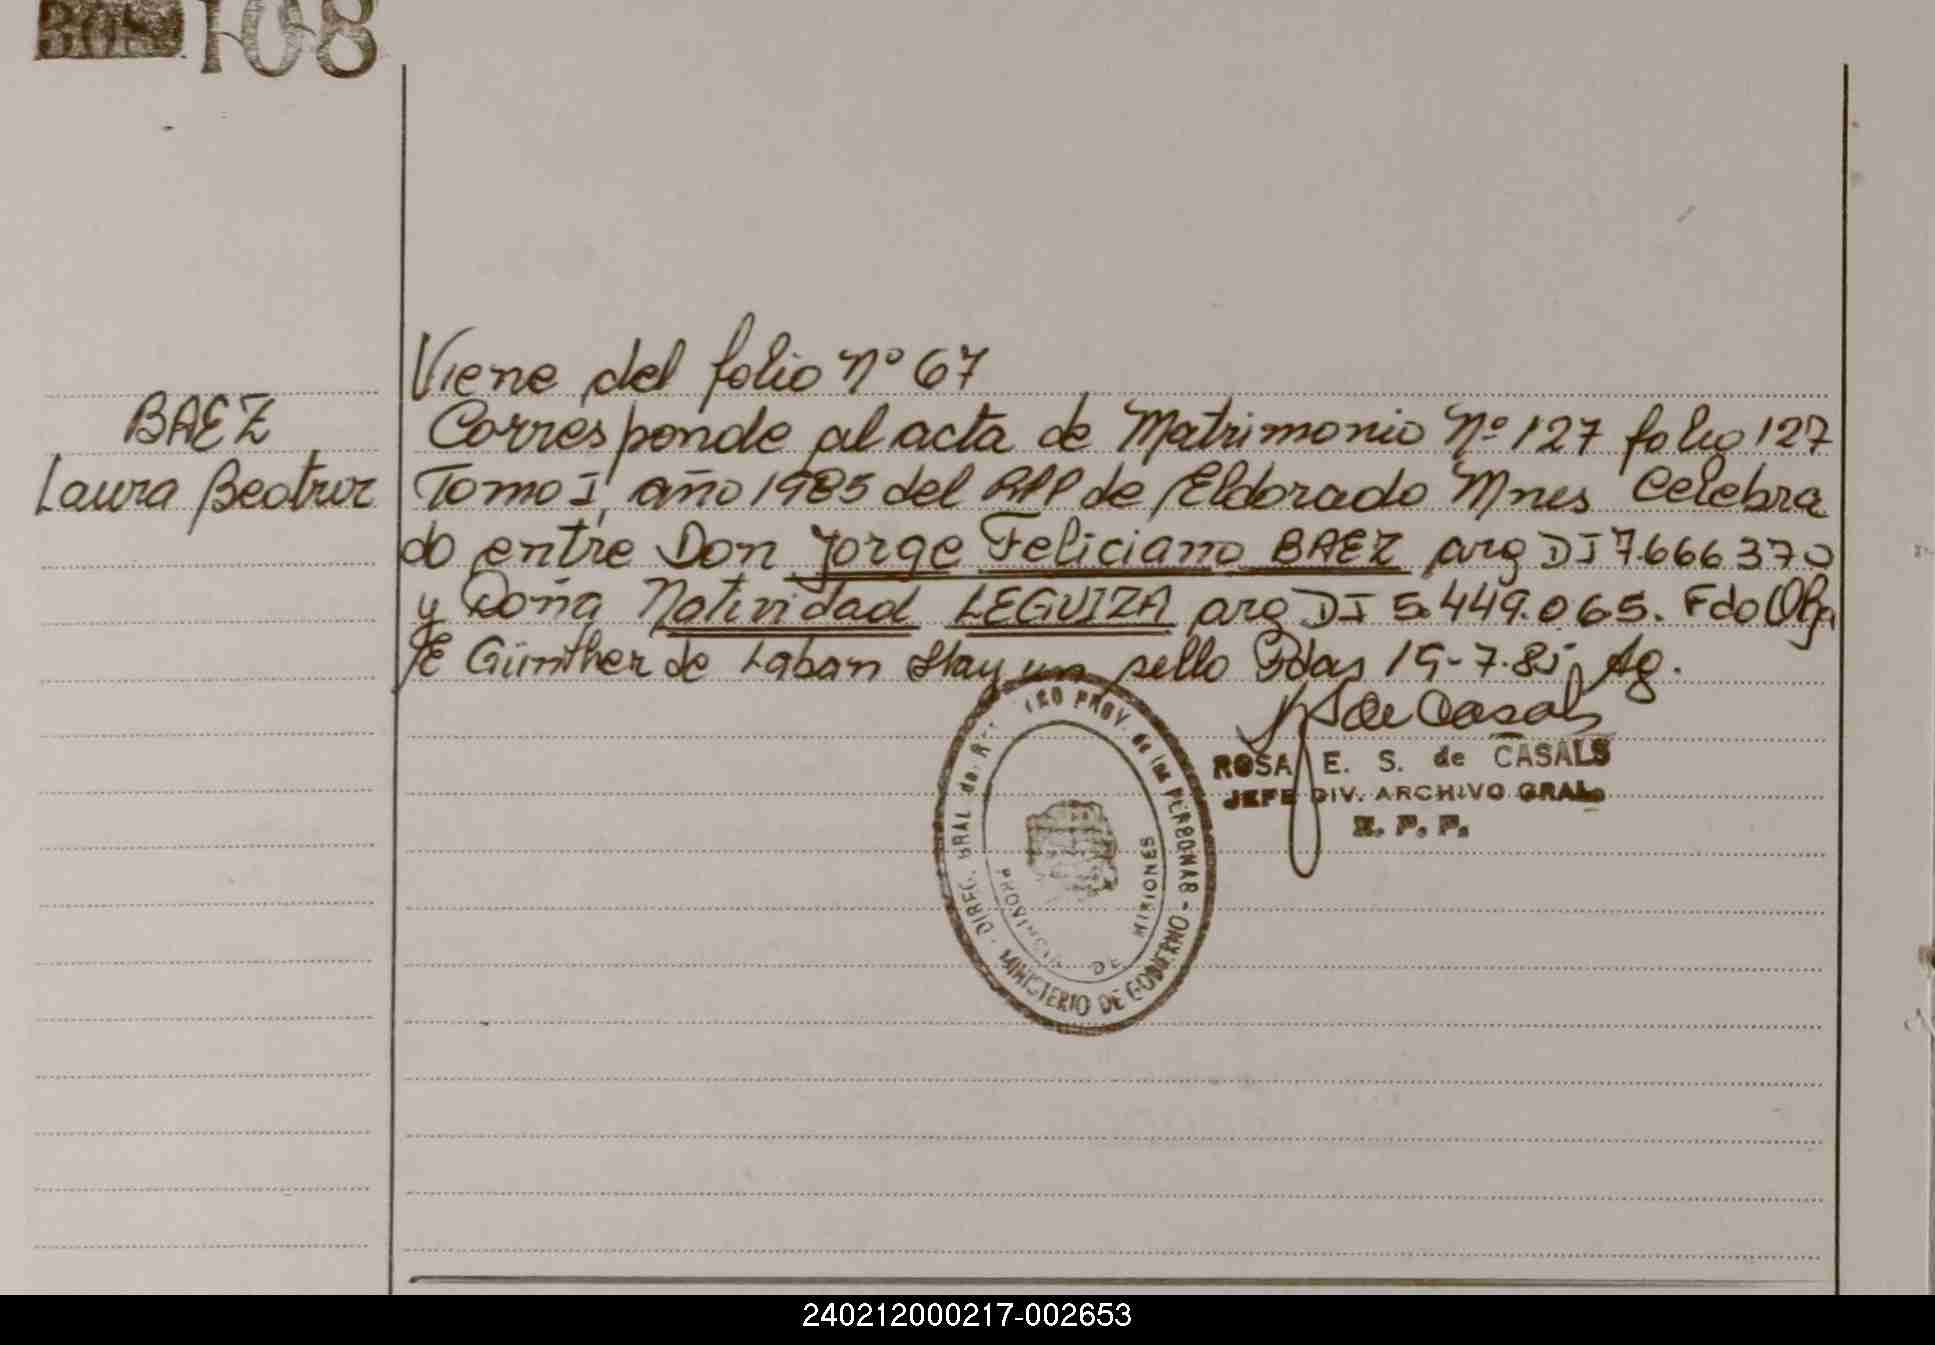 108
Viene del folio Nº 67
BAEZ
Laura Beatriz
Corresponde al acta de Matrimonio Nº 127 folio 127
Tomo I, año 1985 del RPP de Eldorado Mnes Celebra
do entre Don Jorge Feliciano BAEZ arg DI 7.666.370
y Doña Natividad LEGUIZA arg DI 5.449.065. Fdo Olga
E Günther de Laban Hay un sello Pdas 19-7-85 Ag.
de Casals
ROSA E. S. de CASALS
JEFE DIV. ARCHIVO GRAL.
R. P. P.
DIREC. GRAL de PROV. de las PERSONAS - MINISTERIO DE GOBIERNO
PROVINCIA DE MISIONES
240212000217-002653